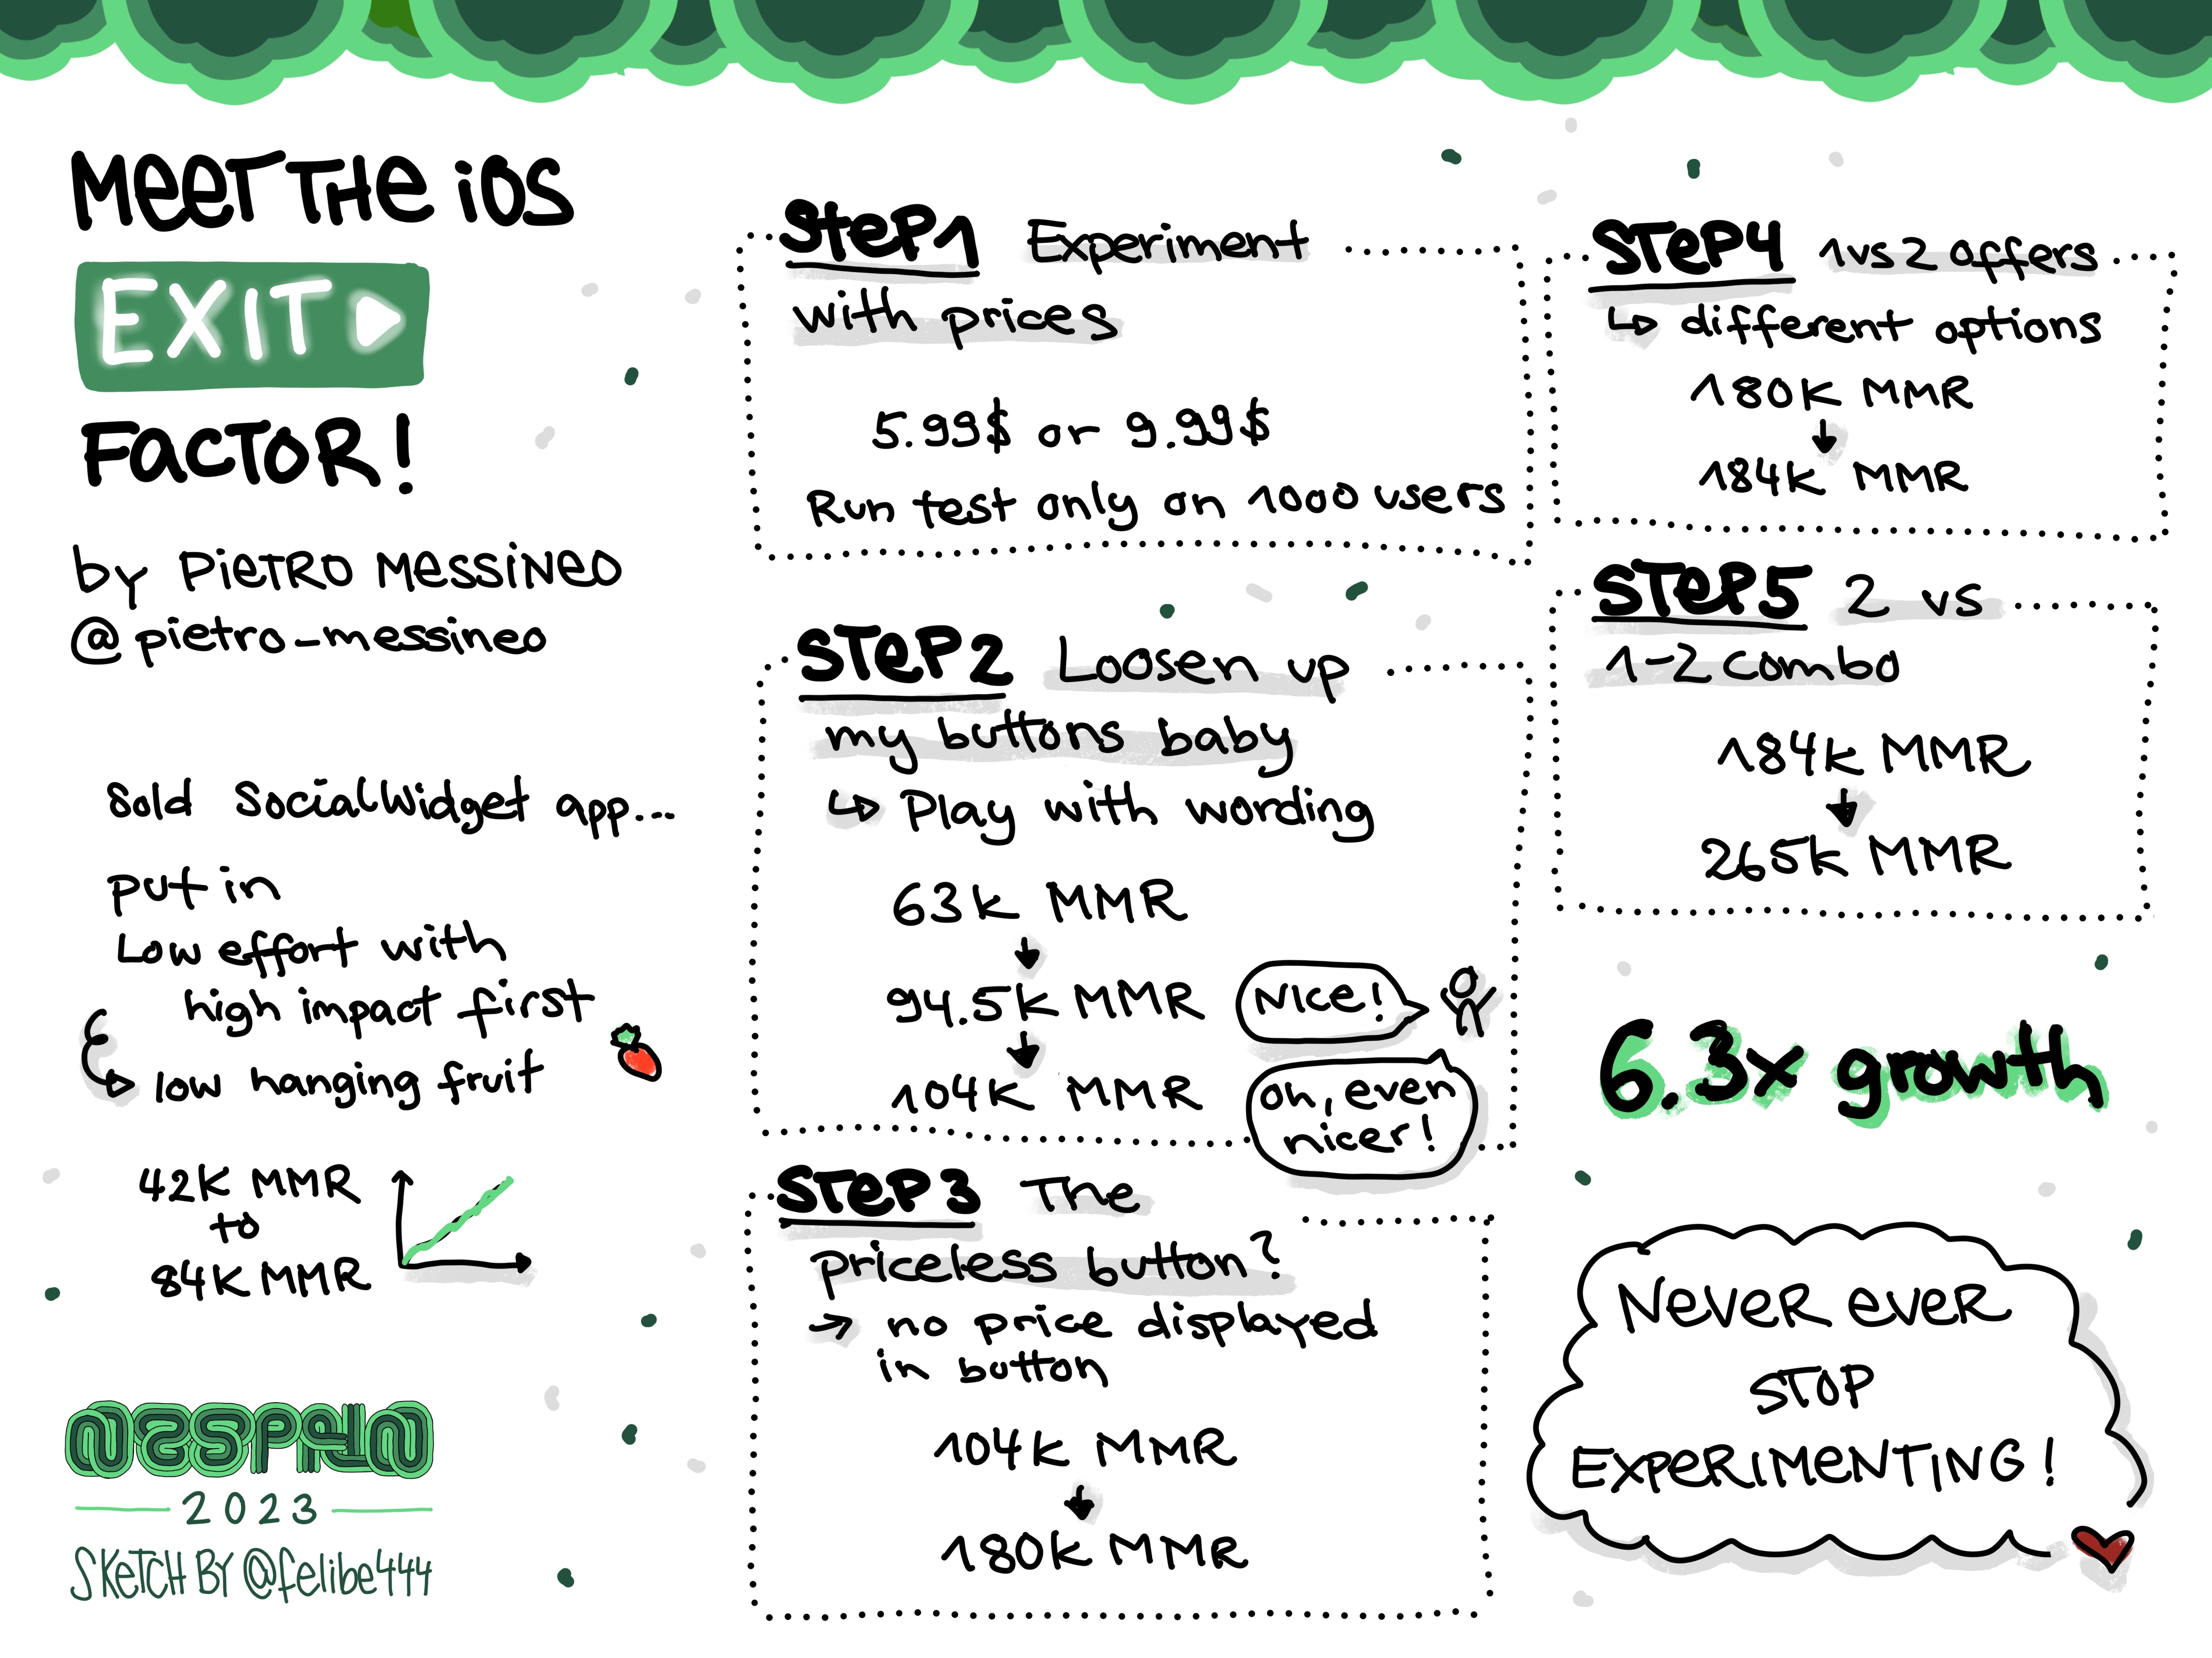 MEET THE iOS
EXIT
FACTOR!
by PIETRO MESSINEO
@pietro-messineo
Sold SocialWidget app...
put in
Low effort with
high impact first
low hanging fruit
42K MMR
to
84K MMR
NSSPAIN
2023
SKETCH BY @felibe444
STEP1 Experiment
with prices
5.99$ or 9.99$
Run test only on 1000 users
STEP2 Loosen up
my buttons baby
Play with wording
63K MMR
94.5K MMR
NICE!
104K MMR
oh, even
nicer!
STEP3 The
priceless button?
no price displayed
in button
104K MMR
180K MMR
STEP4 1vs2 offers
different options
180K MMR
184K MMR
STEP5 2 vs
1-2 combo
184K MMR
265K MMR
6.3x growth
NEVER EVER
STOP
EXPERIMENTING!